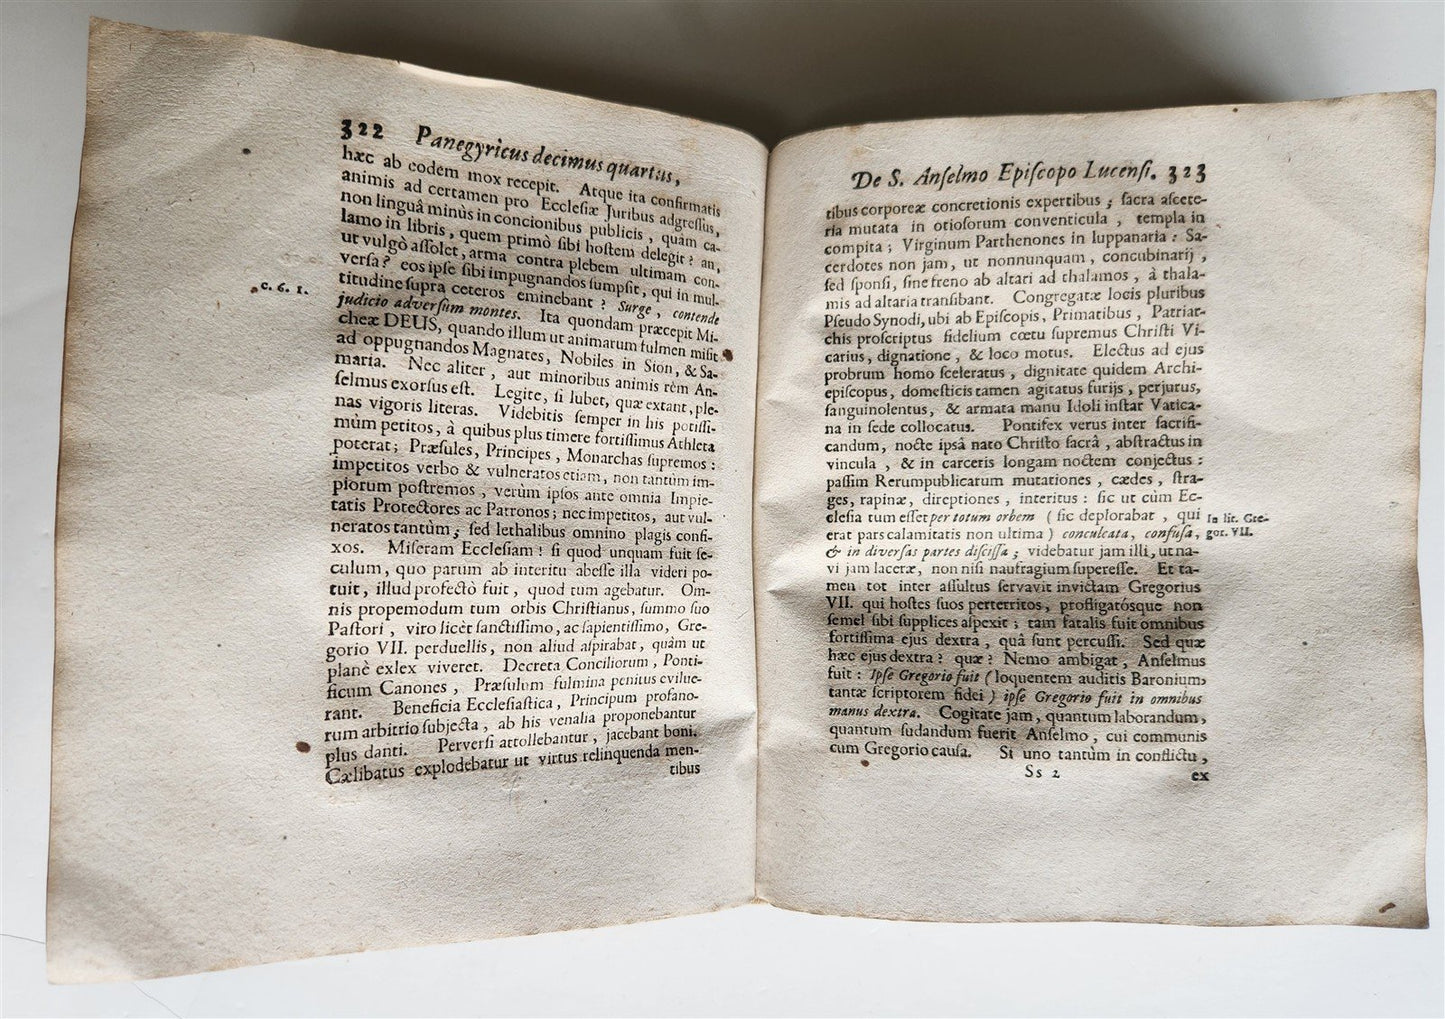 322 Panegyricus decimus quartus,
hæc ab eodem mox recepit. Atque ita confirmatis
animis ad certamen pro Ecclesiæ Juribus adgreſſus,
non linguâ minùs in concionibus publicis, quàm ca-
lamo in libris, quem primò ſibi hoſtem delegit? an,
ut vulgò aſſolet, arma contra plebem ultimam con-
verſa? eos ipſe ſibi impugnandos ſumpſit, qui in mul-
titudine ſupra ceteros eminebant? Surge, contende
c. 6. 1.
judicio adverſum montes. Ita quondam præcepit Mi-
cheæ DEUS, quando illum ut animarum fulmen miſit
ad oppugnandos Magnates, Nobiles in Sion, & Sa-
maria. Nec aliter, aut minoribus animis rem An-
ſelmus exorſus eſt. Legite, ſi lubet, quæ extant, ple-
nas vigoris literas. Videbitis ſemper in his potiſſi-
mùm petitos, à quibus plus timere fortiſſimus Athleta
poterat; Præſules, Principes, Monarchas ſupremos:
impetitos verbo & vulneratos etiam, non tantùm im-
piorum poſtremos, verùm ipſos ante omnia Impie-
tatis Protectores ac Patronos; nec impetitos, aut vul-
neratos tantùm; ſed lethalibus omnino plagis confi-
xos. Miſeram Eccleſiam! ſi quod unquam fuit ſe-
culum, quo parum ab interitu abeſſe illa videri po-
tuit, illud profectò fuit, quod tum agebatur. Om-
nis propemodum tum orbis Chriſtianus, ſummo ſuo
Paſtori, viro licèt ſanctiſſimo, ac ſapientiſſimo, Gre-
gorio VII. perduellis, non aliud aſpirabat, quàm ut
planè exlex viveret. Decreta Conciliorum, Ponti-
ficum Canones, Præſulum fulmina penitus evilue-
rant. Beneficia Eccleſiaſtica, Principum profano-
rum arbitrio ſubjecta, ab his venalia proponebantur
plus danti. Perverſi attollebantur, jacebant boni.
Cælibatus explodebatur ut virtus relinquenda men-
tibus
De S. Anſelmo Epiſcopo Lucenſi. 323
tibus corporeæ concretionis expertibus; ſacra aſcete-
ria mutata in otioſorum conventicula, templa in
compita; Virginum Parthenones in luppanaria: Sa-
cerdotes non jam, ut nonnunquam, concubinarij,
ſed ſponſi, ſine freno ab altari ad thalamos, à thala-
mis ad altaria tranſibant. Congregatæ locis pluribus
Pſeudo Synodi, ubi ab Epiſcopis, Primatibus, Patriar-
chis proſcriptus fidelium cœtu ſupremus Chriſti Vi-
carius, dignatione, & loco motus. Electus ad ejus
probrum homo ſceleratus, dignitate quidem Archi-
epiſcopus, domeſticis tamen agitatus furijs, perjurus,
ſanguinolentus, & armata manu Idoli inſtar Vatica-
na in ſede collocatus. Pontifex verus inter ſacrifi-
candum, nocte ipsâ nato Chriſto ſacrâ, abſtractus in
vincula, & in carceris longam noctem conjectus:
paſſim Rerumpublicarum mutationes, cædes, ſtra-
ges, rapinæ, direptiones, interitus: ſic ut cùm Ec-
cleſia tum eſſet per totum orbem (ſic deplorabat, qui
In lit. Gre-
erat pars calamitatis non ultima) conculcata, confuſa,
gor. VII.
& in diverſas partes diſciſſa; videbatur jam illi, ut na-
vi jam laceræ, non niſi naufragium ſupereſſe. Et ta-
men tot inter aſſultus ſervavit invictam Gregorius
VII. qui hoſtes ſuos perterritos, profligatósque non
ſemel ſibi ſupplices aſpexit; tam fatalis fuit omnibus
fortiſſima ejus dextra, quâ ſunt percuſſi. Sed quæ
hæc ejus dextra? quæ? Nemo ambigat, Anſelmus
fuit: Ipſe Gregorio fuit (loquentem auditis Baronium,
tantæ ſcriptorem fidei) ipſe Gregorio fuit in omnibus
manus dextra. Cogitate jam, quantum laborandum,
quantum ſudandum fuerit Anſelmo, cui communis
cum Gregorio cauſa. Si uno tantùm in conflictu,
Ss 2 ex